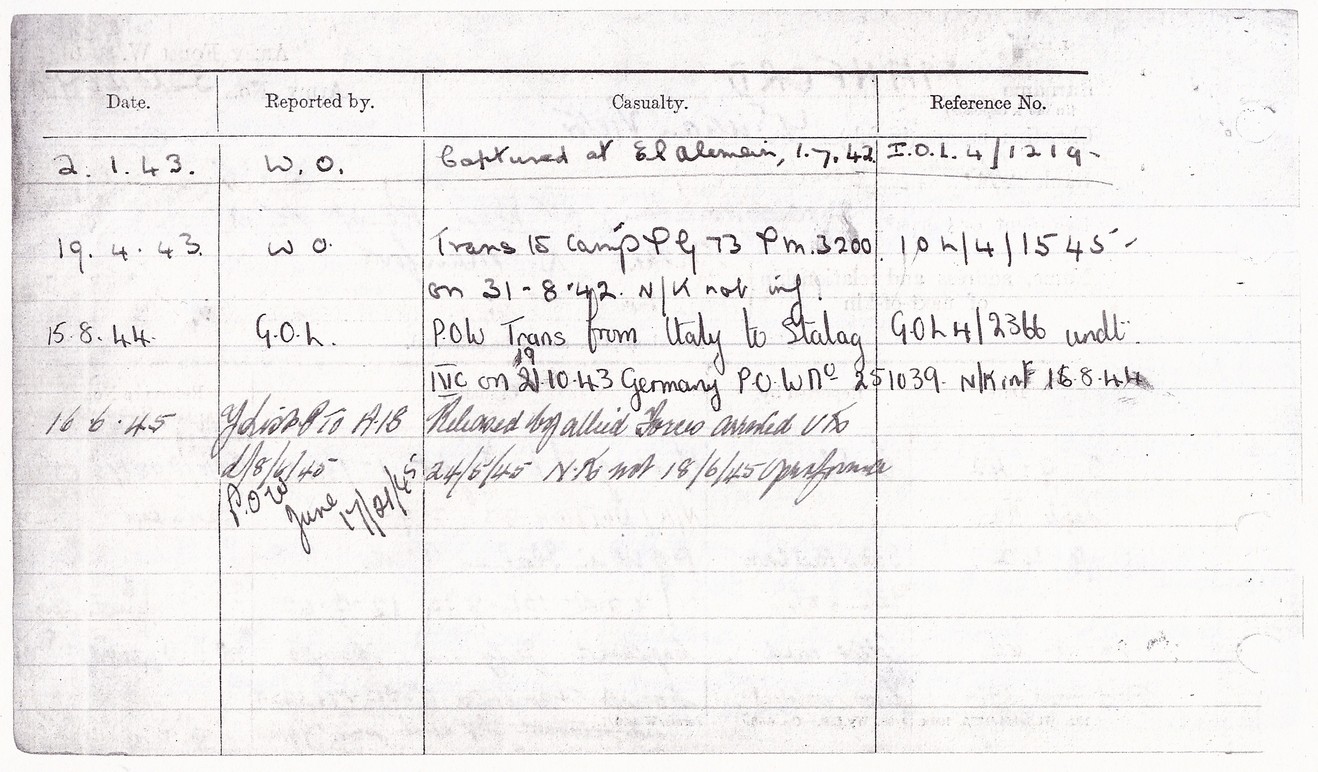 Date. Reported by. Casualty. Reference No.
2.1.43. W.O. Captured at El Alemein, 1.7.42. I.O.L.4/1219-
19.4.43. W O. Trans 15 Camp P G 73 P.m.3200 10L/4/1545-
on 31-8-42. N/K not
15.8.44. G.O.L. P.O.W Trans from Italy to Stalag GOL4/2366 undt.
19
IVC on 21.10.43 Germany P.O.W No 251039. N/K inf 18.8.44
16 6.45 A.18 Released by allied Forces arrived UK
d/8/6/45 24/5/45 N.K. not 18/6/45
P.O.W
June
17/21/45